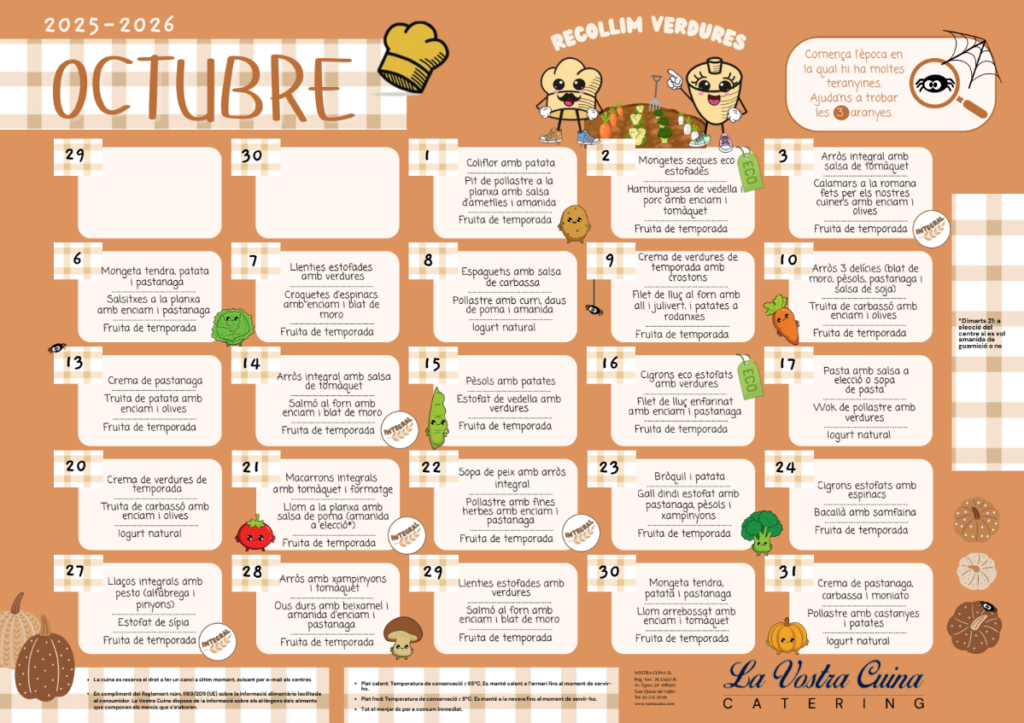 2025-2026
OCTUBRE
RECOLLIM VERDURES
Comença l'època en
la qual hi ha moltes
teranyines.
Ajuda'ns a trobar
les 3 aranyes.
29
30
1
Coliflor amb patata
Pit de pollastre a la
planxa amb salsa
d'ametlles i amanida
Fruita de temporada
2
Mongetes seques eco
estofades
Hamburguesa de vedella i
porc amb enciam i
tomàquet
Fruita de temporada
ECO
3
Arròs integral amb
salsa de tomàquet
Calamars a la romana
fets per els nostres
cuiners amb enciam i
olives
Fruita de temporada
INTEGRAL
6
Mongeta tendra, patata
i pastanaga
Salsitxes a la planxa
amb enciam i pastanaga
Fruita de temporada
7
Llenties estofades
amb verdures
Croquetes d'espinacs
amb enciam i blat de
moro
Fruita de temporada
8
Espaguets amb salsa
de carbassa
Pollastre amb curri, daus
de poma i amanida
Iogurt natural
9
Crema de verdures de
temporada amb
crostons
Filet de lluç al forn amb
all i julivert, i patates a
rodanxes
Fruita de temporada
10
Arròs 3 delícies (blat de
moro, pèsols, pastanaga i
salsa de soja)
Truita de carbassó amb
enciam i olives
Fruita de temporada
*Dimarts 21: a
elecció del
centre si es vol
amanida de
guarnició o no
13
Crema de pastanaga
Truita de patata amb
enciam i olives
Fruita de temporada
14
Arròs integral amb salsa
de tomàquet
Salmó al forn amb
enciam i blat de moro
Fruita de temporada
INTEGRAL
15
Pèsols amb patates
Estofat de vedella amb
verdures
Fruita de temporada
16
Cigrons eco estofats
amb verdures
Filet de lluç enfarinat
amb enciam i pastanaga
Fruita de temporada
ECO
17
Pasta amb salsa a
elecció o sopa
de pasta
Wok de pollastre amb
verdures
Iogurt natural
20
Crema de verdures de
temporada
Truita de carbassó amb
enciam i olives
Iogurt natural
21
Macarrons integrals
amb tomàquet i formatge
Llom a la planxa amb
salsa de poma (amanida
a elecció*)
Fruita de temporada
INTEGRAL
22
Sopa de peix amb arròs
integral
Pollastre amb fines
herbes amb enciam i
pastanaga
Fruita de temporada
INTEGRAL
23
Bròquil i patata
Gall dindi estofat amb
pastanaga, pèsols i
xampinyons
Fruita de temporada
24
Cigrons estofats amb
espinacs
Bacallà amb samfaina
Fruita de temporada
27
Llaços integrals amb
pesto (alfàbrega i
pinyons)
Estofat de sípia
Fruita de temporada
INTEGRAL
28
Arròs amb xampinyons
i tomàquet
Ous durs amb beixamel i
amanida d'enciam i
pastanaga
Fruita de temporada
29
Llenties estofades amb
verdures
Salmó al forn amb
enciam i blat de moro
Fruita de temporada
30
Mongeta tendra,
patata i pastanaga
Llom arrebossat amb
enciam i tomàquet
Fruita de temporada
31
Crema de pastanaga,
carbassa i moniato
Pollastre amb castanyes
i patates
Iogurt natural
La cuina es reserva el dret a fer un canvi a últim moment, avisant per e-mail als centres.
En compliment del Reglament núm. 1169/2011 (UE) sobre la informació alimentària facilitada
al consumidor. La Vostra Cuina disposa de la informació sobre els al·lèrgens dels aliments
que componen els menús que s'elaboren.
Plat calent: Temperatura de conservació ≥ 65°C. Es manté calent a l'armari fins al moment de servir-
ho.
Plat fred: Temperatura de conservació ≤ 8°C. Es manté a la nevera fins al moment de servir-ho.
Tot el menjar és per a consum immediat.
VOSTRA CUINA SL
La Vostra Cuina
CATERING